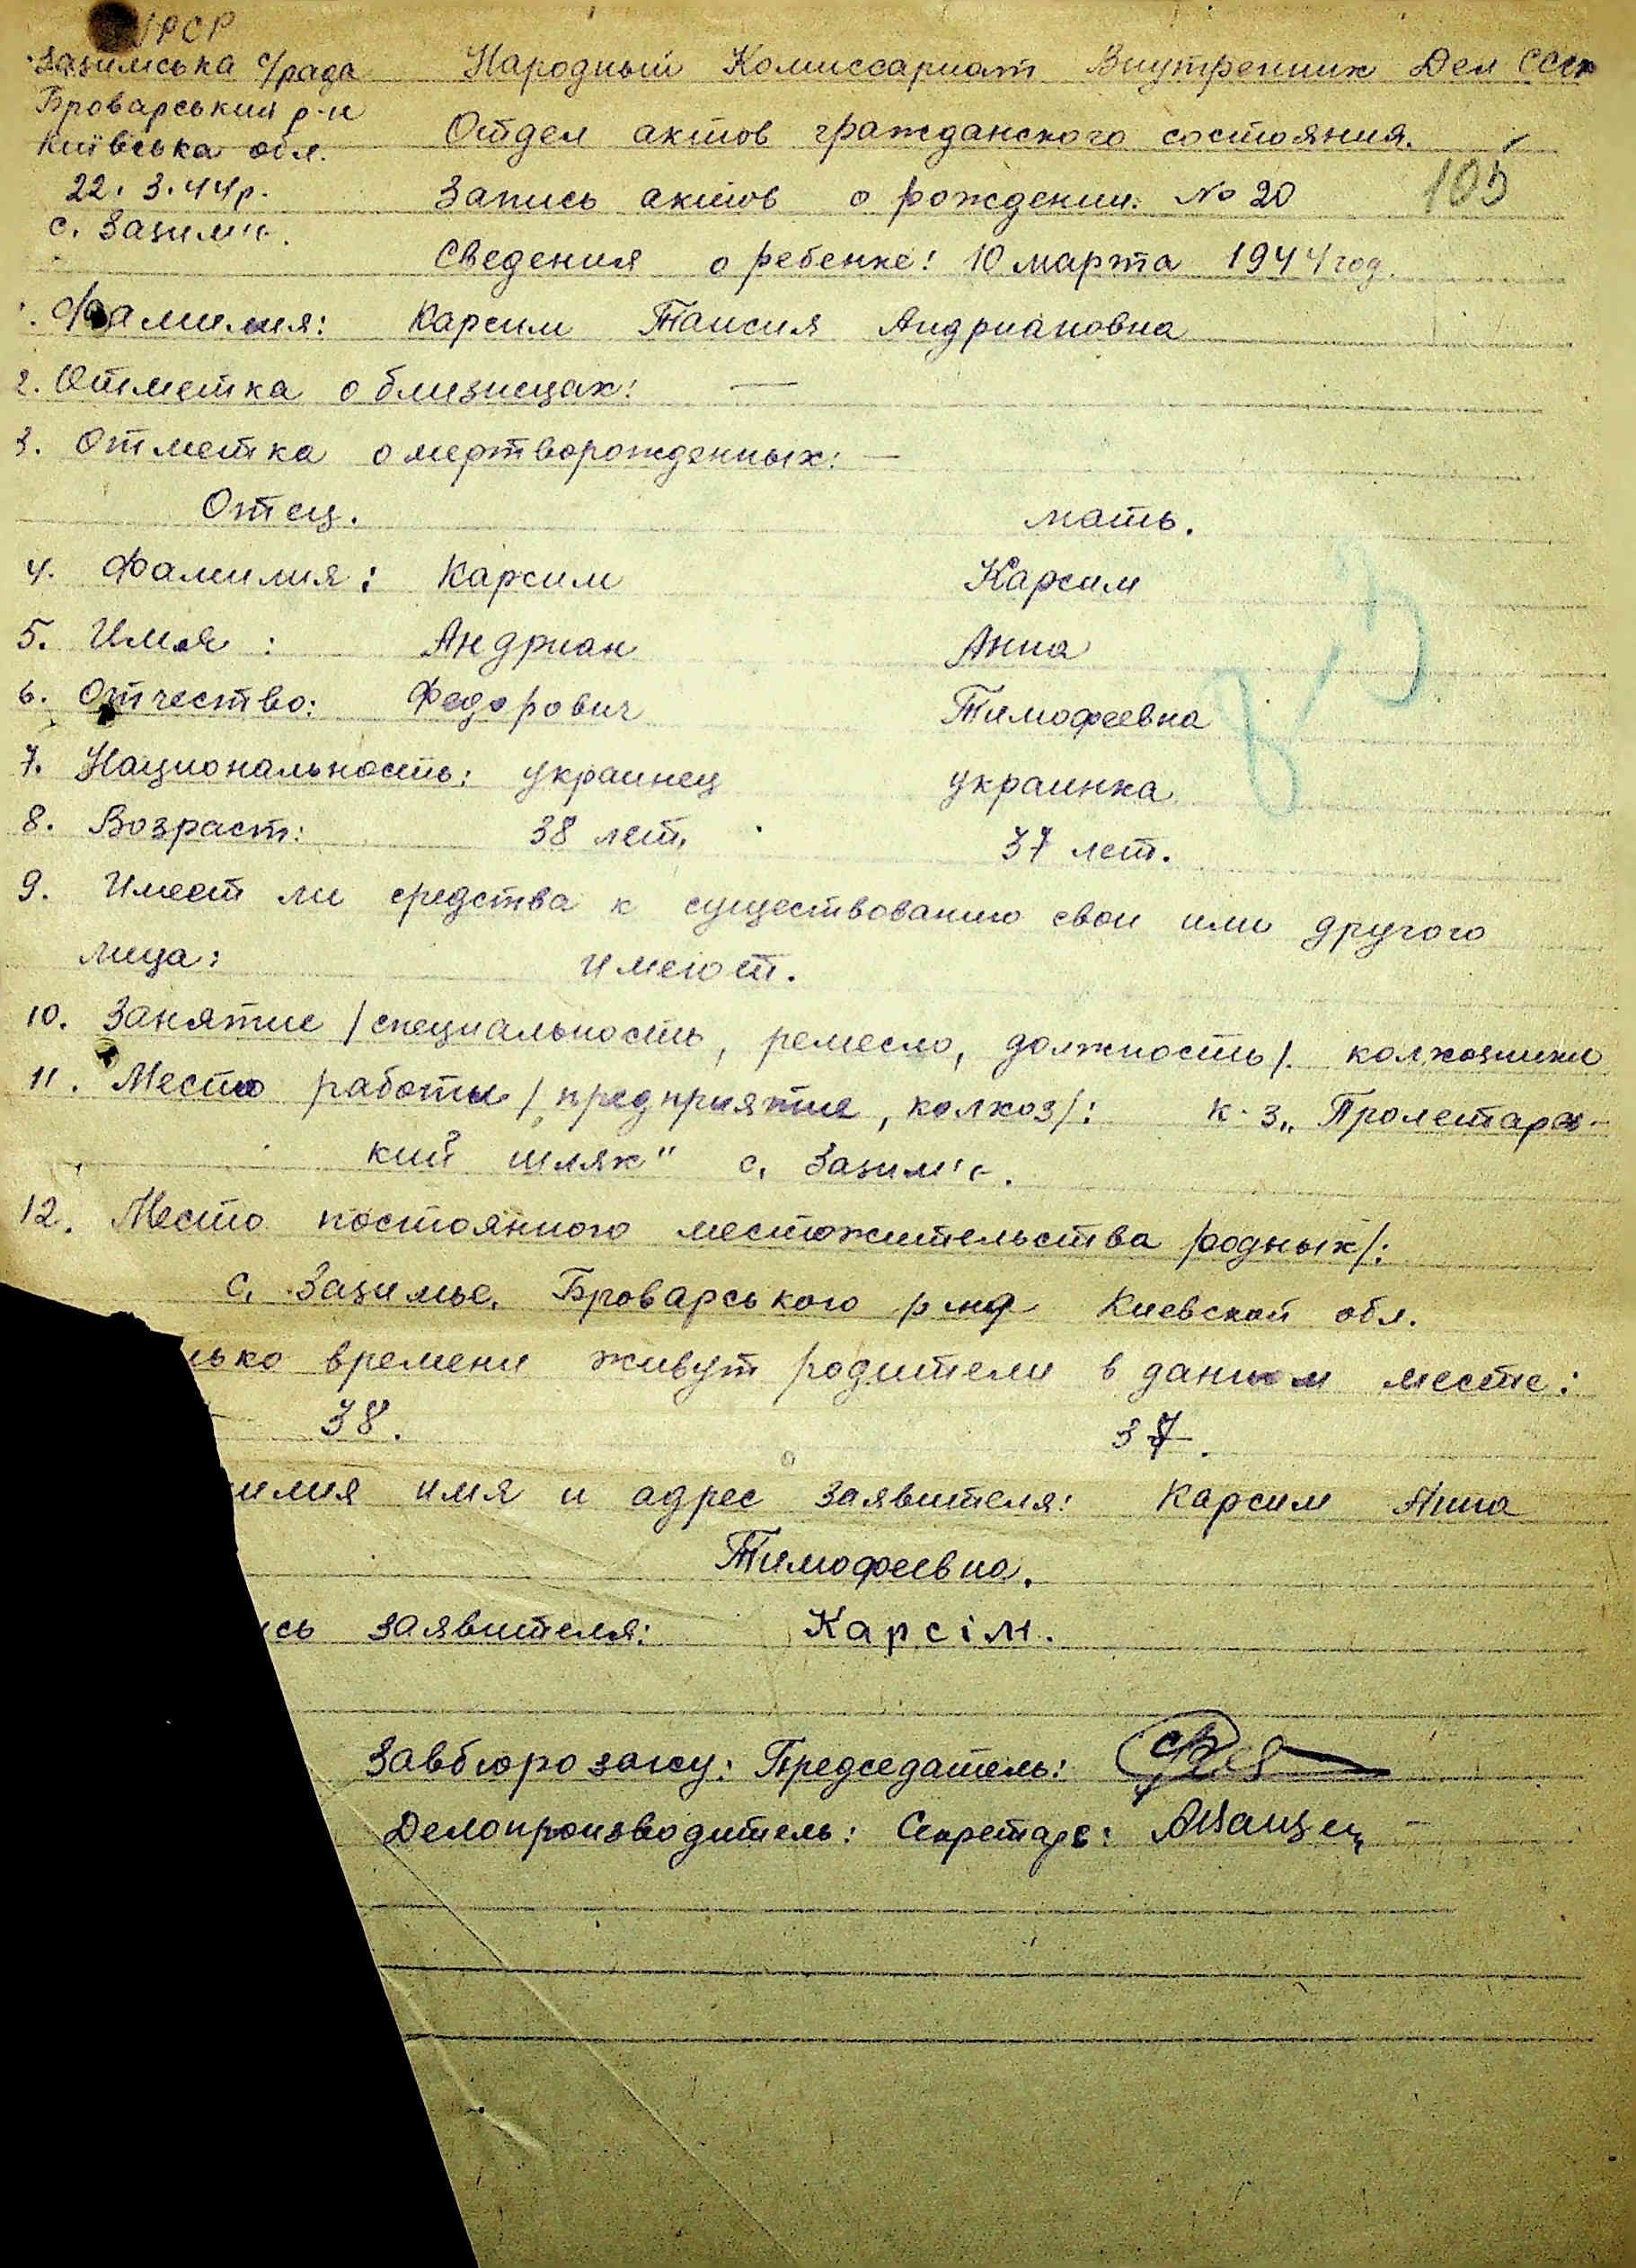 УРСР
Зазимська с/рада
Броварський р-н
Київська обл.
22. 3. 44р.
с. Зазим'є.
Народный Комиссариат Внутренних Дел СССР
Отдел актов гражданского состояния.
Запись актов о рождении. № 20
105
Сведения о ребенке: 10 марта 1944 год.
1. Фамилия: Карсим Таисия Андриановна
2. Отметка о близнецах: —
3. Отметка о мертворожденных: —
Отец. мать.
4. Фамилия: Карсим Карсим
5. Имя: Андриан Анна
6. Отчество: Федорович Тимофеевна
7. Национальность: украинец украинка
8. Возраст: 38 лет. 37 лет.
9. Имеет ли средства к существованию свои или другого
лица: имеют.
10. Занятие /специальность, ремесло, должность/. колхозники
11. Место работы /предприятие, колхоз/: к-з „Пролетарс-
кий шлях" с. Зазим'є.
12. Место постоянного местожительства родных/:
с. Зазимье. Броварського р-на Киевской обл.
лько времени живут родители в данном месте:
38. 37.
илия имя и адрес заявителя: Карсим Анна
Тимофеевна.
ись заявителя: Карсім.
Завбюро загсу: Председатель:
Делопроизводитель: Секретарь: